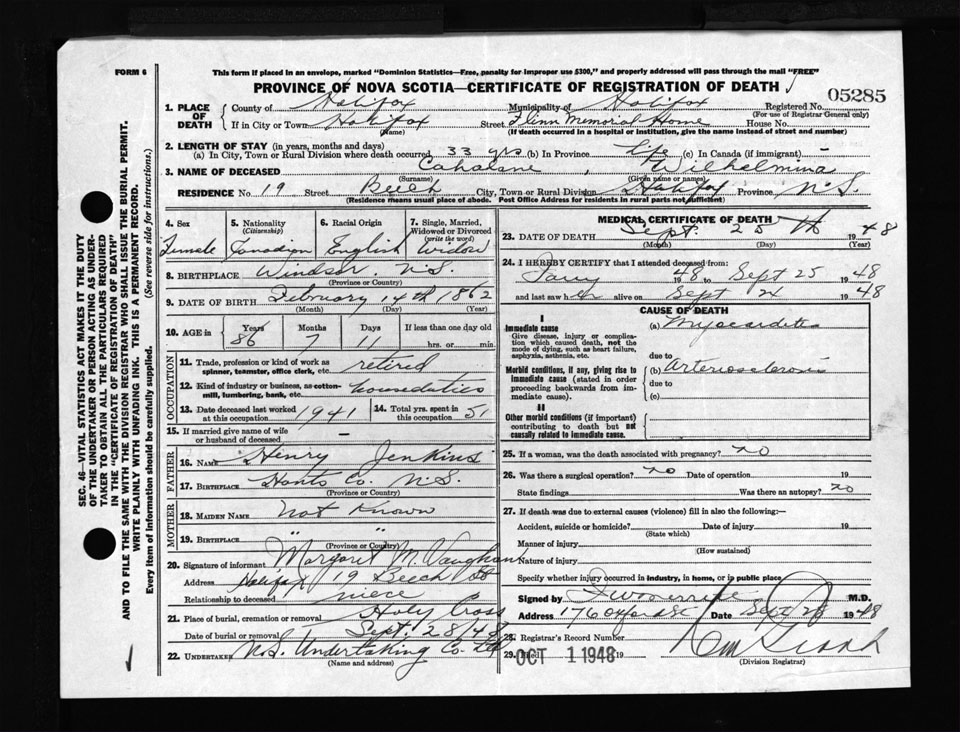 FORM 6
This form if placed in an envelope, marked "Dominion Statistics—Free, penalty for improper use $300," and properly addressed will pass through the mail "FREE"
PROVINCE OF NOVA SCOTIA—CERTIFICATE OF REGISTRATION OF DEATH
05285
1. PLACE OF DEATH
County of Halifax Municipality of Halifax Registered No.
(For use of Registrar General only)
If in City or Town Halifax Street Flinn Memorial Home House No.
(Name) (If death occurred in a hospital or institution, give the name instead of street and number)
2. LENGTH OF STAY (in years, months and days)
(a) In City, Town or Rural Division where death occurred 33 yrs (b) In Province life (c) In Canada (if immigrant) -
3. NAME OF DECEASED Cahalane, Wilhelmina
(Surname) (Given name or names)
RESIDENCE No 19 Street Beech City, Town or Rural Division Halifax Province N.S.
(Residence means usual place of abode. Post Office Address for residents in rural parts not sufficient)
4. Sex Female
5. Nationality (Citizenship) Canadian
6. Racial Origin English
7. Single, Married, Widowed or Divorced (write the word) Widow
8. BIRTHPLACE Windsor, N.S.
(Province or Country)
9. DATE OF BIRTH February 14th 1862
(Month) (Day) (Year)
10. AGE in
Years Months Days If less than one day old
86 7 11 hrs. or min.
OCCUPATION
11. Trade, profession or kind of work as spinner, teamster, office clerk, etc. retired
12. Kind of industry or business, as cotton-mill, lumbering, bank, etc. housedutics
13. Date deceased last worked at this occupation 1941
14. Total yrs. spent in this occupation 51
15. If married give name of wife or husband of deceased -
FATHER
16. NAME Henry Jenkins
17. BIRTHPLACE Hants Co. N.S.
(Province or Country)
MOTHER
18. MAIDEN NAME Not Known
19. BIRTHPLACE " "
(Province or Country)
20. Signature of informant Margaret M. Vaughan
Address Halifax 19 Beech St
Relationship to deceased niece
21. Place of burial, cremation or removal Holy Cross
Date of burial or removal Sept. 28/48
22. UNDERTAKER N.S. Undertaking Co Ltd
(Name and address)
MEDICAL CERTIFICATE OF DEATH
23. DATE OF DEATH Sept. 25th 1948
(Month) (Day) (Year)
24. I HEREBY CERTIFY that I attended deceased from:
48 to Sept 25 1948
and last saw her alive on Sept 24 1948
CAUSE OF DEATH
I
Immediate cause
Give disease, injury or complication which caused death, not the mode of dying, such as heart failure, asphyxia, asthenia, etc.
(a) Myocarditis
due to
Morbid conditions, if any, giving rise to immediate cause (stated in order proceeding backwards from immediate cause).
(b) Arteriosclerosis
due to
(c)
II
Other morbid conditions (if important) contributing to death but not causally related to immediate cause.
25. If a woman, was the death associated with pregnancy? no
26. Was there a surgical operation? no Date of operation 19
State findings Was there an autopsy? no
27. If death was due to external causes (violence) fill in also the following:—
Accident, suicide or homicide? Date of injury 19
(State which)
Manner of injury
(How sustained)
Nature of injury
Specify whether injury occurred in industry, in home, or in public place
Signed by M.D.
Address 176 Date Sept 1948
28. Registrar's Record Number
29. Filed OCT 1 1948 19
(Division Registrar)
SEC. 46—VITAL STATISTICS ACT MAKES IT THE DUTY
OF THE UNDERTAKER OR PERSON ACTING AS UNDER-
TAKER TO OBTAIN ALL THE PARTICULARS REQUIRED
IN THE "CERTIFICATE OF REGISTRATION OF DEATH"
AND TO FILE THE SAME WITH THE DIVISION REGISTRAR WHO SHALL ISSUE THE BURIAL PERMIT.
WRITE PLAINLY WITH UNFADING INK. THIS IS A PERMANENT RECORD.
Every item of information should be carefully supplied. (See reverse side for instructions.)